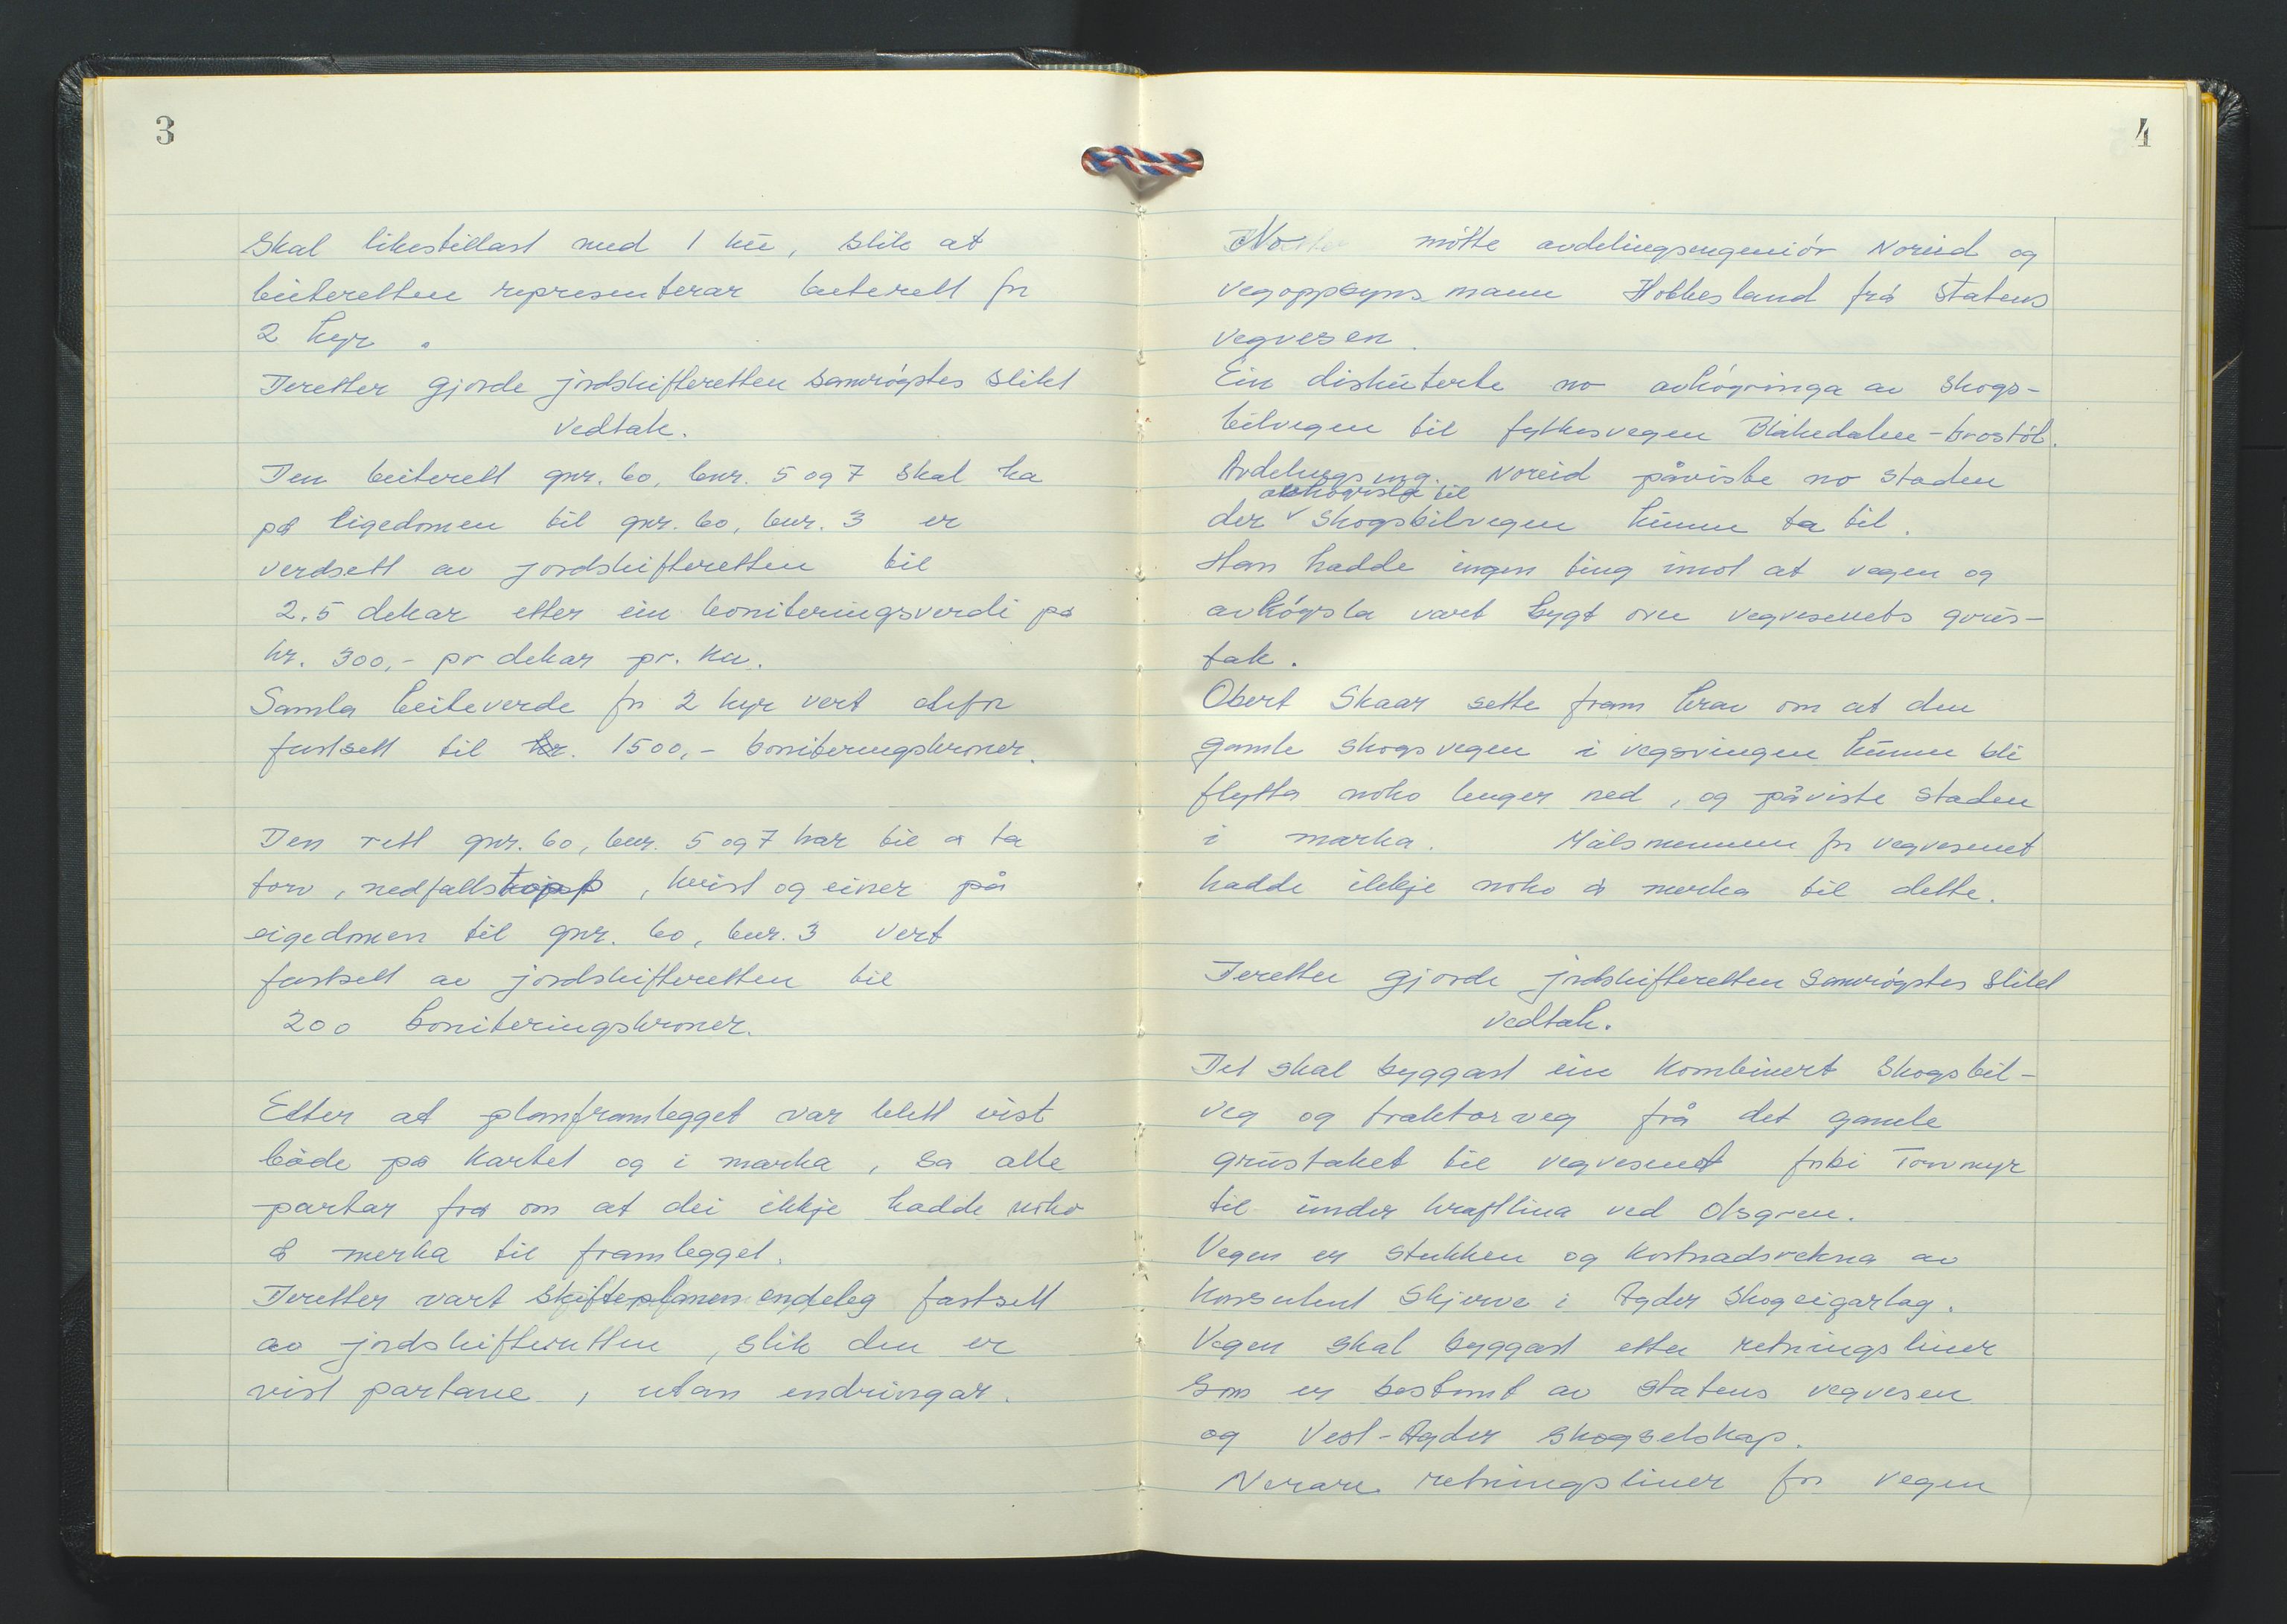 3
skal likestillast med 1 ku, slik at
beiteretten representerar beiterett for
2 kyr.
Deretter gjorde jordskifteretten samrøystes slikt
vedtak.
Den beiterett gnr. 60, bnr. 5 og 7 skal ha
på eigedomen til gnr. 60, bnr. 3 er
verdsett av jordskifteretten til
2.5 dekar etter ein boniteringsverdi på
kr. 300,- pr dekar pr. ku.
Samla beiteverde for 2 kyr vert derfor
fastsett til kr. 1500,- boniteringskroner.
Den rett gnr. 60, bnr. 5 og 7 har til å ta
torv, nedfallstopp, kvist og einer på
eigedomen til gnr. 60, bnr. 3 vert
fastsett av jordskifteretten til
200 boniteringskroner.
Etter at planframlegget var blitt vist
både på kartet og i marka, sa alle
partar frå om at dei ikkje hadde noko
å merka til framlegget.
Deretter vart skifteplanen endeleg fastsett
av jordskifteretten, slik den er
vist partane, utan endringar.
4
No møtte avdelingsingeniør Noreid og
vegoppsynsmann Hobbesland frá Statens
vegvesen.
Ein diskuterte no avkøyringa av skogs-
bilvegen til fylkesvegen
Avdelingsing. Noreid påviste no staden
avkøyrsla til
der v skogsbilvegen kunne ta til.
Han hadde ingen ting imot at vegen og
avkøyrsla vart bygt over vegvesenets grus-
tak.
Obert Skaar sette fram krav om at den
gamle skogsvegen i vegsvingen kunne bli
flytta noko lenger ned, og påviste staden
i marka. Målsmennene for vegvesenet
hadde ikkje noko å merka til dette.
Deretter gjorde jordskifteretten samrøystes slikt
vedtak.
Det skal byggast ein kombinert skogsbil-
veg og traktorveg frå det gamle
grustaket til vegvesenet forbi Torvmyr
til under kraftlina ved
Vegen er stukken og kostnadsrekna av
konsulent Skjerve i Agder Skogeigarlag.
Vegen skal byggast etter retningsliner
som er bestemt av Statens vegvesen
og Vest-Agder skogselskap.
Nerare retningsliner for vegen